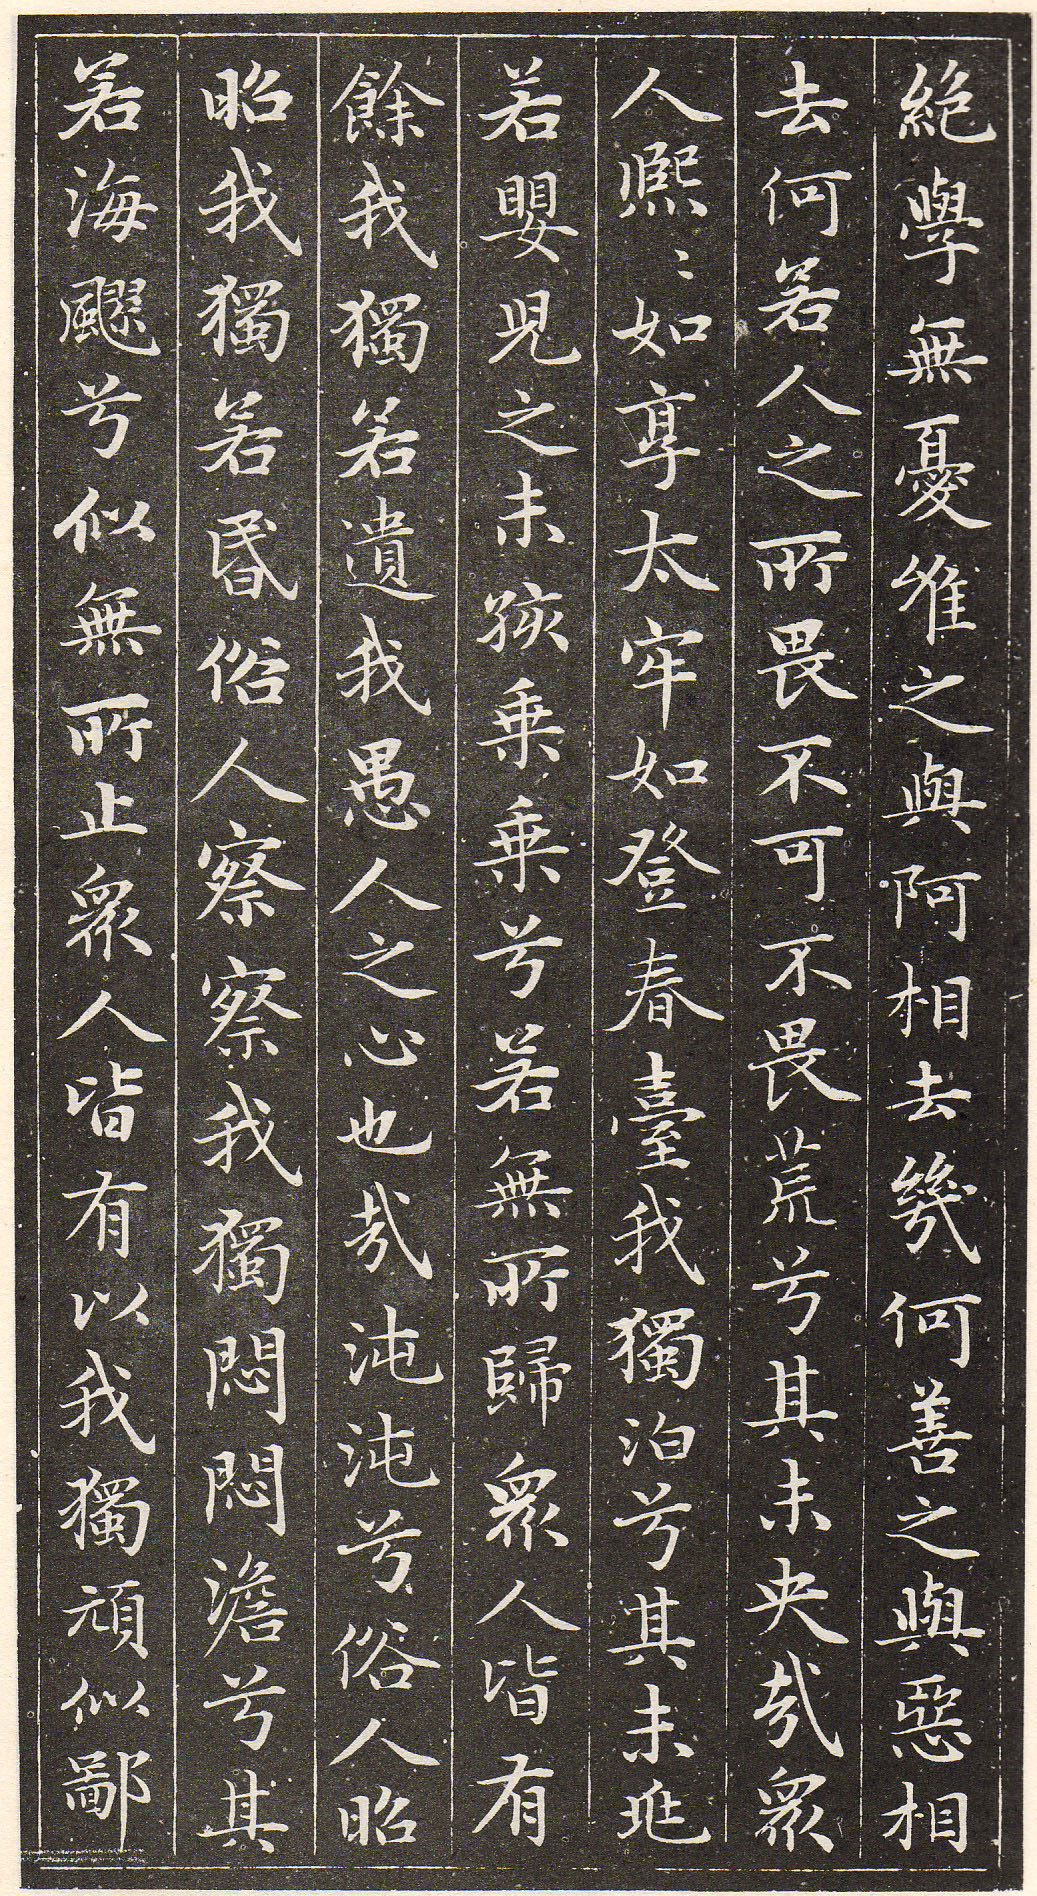 絶學無憂唯之與阿相去幾何善之與惡相
去何若人之所畏不可不畏荒兮其未央哉衆
人熈〻如享太牢如登春臺我獨泊兮其未兆
若嬰児之未孩乗乗兮若無所歸衆人皆有
餘我獨若遺我愚人之心也哉沌沌兮俗人昭
昭我獨若昏俗人察察我獨悶悶澹兮其
若海飂兮似無所止衆人皆有以我獨頑似鄙